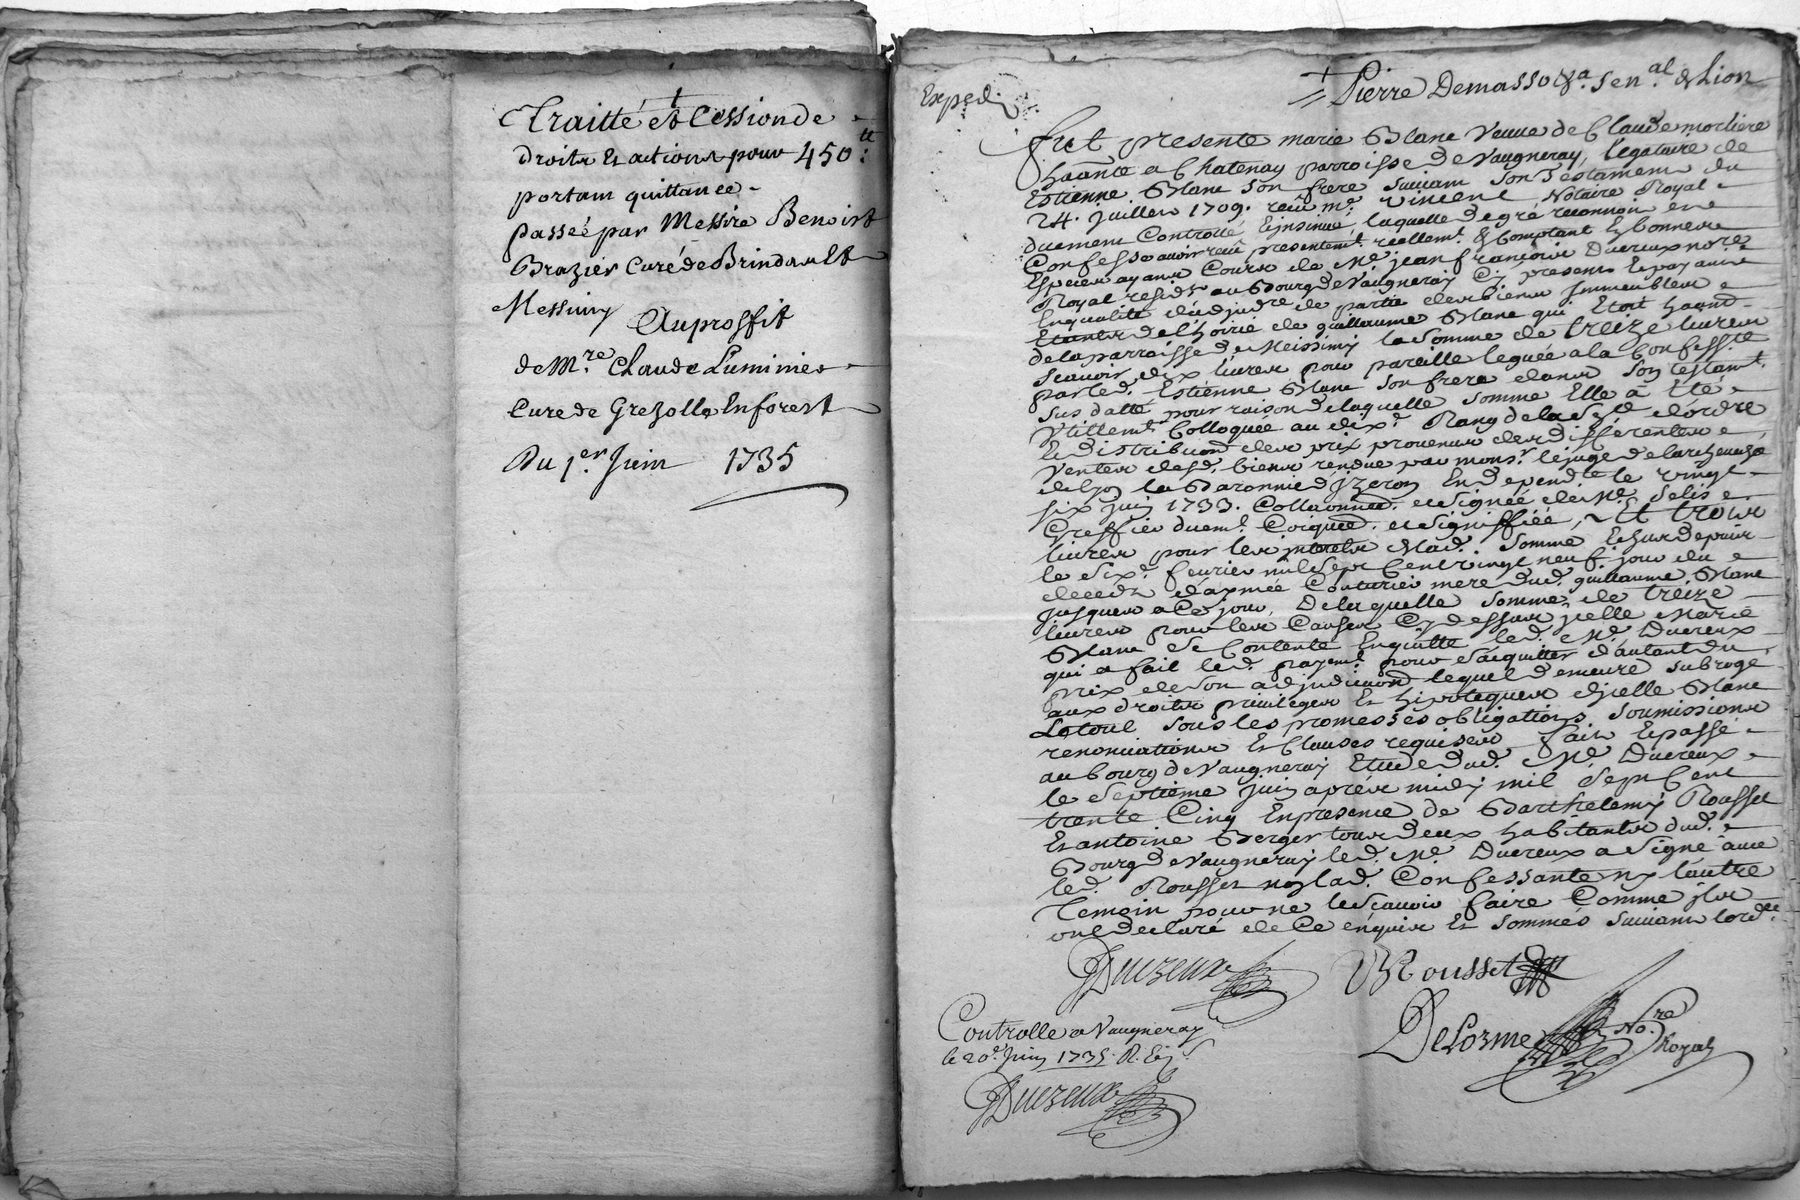 Traitté et Cession de
droits et actions pour 450 tt:
portant quittance
passée par Messire Benoist
Brazier Curé de Brindas Et
Messimy
Au proffit
de Mre. Claude Luminier
Curé de Grezolle En forest
Du 1er. Juin 1735
Expedi.
Pierre Demasso &a. Senal. de Lion
Fut presente marie Blanc Veuve de Claude morliere
haante a Chatenay parroisse de Vaugneray, legataire de
Estienne Blanc son frere suivant son Testament du
24. juillet 1709. receu me. vincent Notaire Royal
duement Controllé Et jnsinué, laquelle de gré reconnoit et
Confesse avoir receu presentemt. reellemt. & Comptant Et bonnes
Especes ayant Cours de Me. jean françois Ducreux nore.
Royal residt. au Bourg de Vaugneray Cy present Et payant
En qualité d'adjdre. de partie des biens Jmmeubles
Etants de l'hoirie de guillaume Blanc qui Etoit haant
de la parroisse de Meissimy la somme de treize livres
scavoir dix livres pour pareille leguée a la Confesste.
par led. Estienne Blanc son frere dans son testamt.
sus datté pour raison de laquelle somme Elle à Eté
Vtillemt. Colloquée au dix. Rang de la Sce. d'ordre
Et distribuon des prix provenus des differentes
Ventes desd. biens rendue par monsr. le juge de l'archevesché
de Lyon la Baronnie d'jzeron En depend. le vingt
six juin 1733. Collaonnée. et signée de Me. Selis
Greffier duemt. Coiquée. et signiffiée, Et trois
livres pour les jnterets de lad. Somme Echus depuis
le six. fevrier mil sept Cent vingt neuf. jour du
deceds d'aymée Couturier mere dud. guillaume Blanc
jusques a Ce jour, De laquelle somme de treize
livres pour les Causes Cy dessus jcelle Marie
Blanc se Contente En quitte led. Me. Ducreux
qui a fait led. payemt. pour s'acquitter d'autant du
prix de son adjudicaon lequel demeure subrogé
aux droits privileges Et hipoteques d'jcelle Blanc
Le tout sous les promesses obligations. soumissions
renonciations Et Clauses requises fait Et passé
au bourg de Vaugneray Etude dud. Me. Ducreux
le septieme juin aprés midy mil sept Cent
trente Cinq En presence de Barthelemy Rousset
Et antoine Berger tous deux habitants dud.
Bourg de Vaugneray led. Me. Ducreux a signé avec
led. Rousset no lad. Confessante ny l'autre
Temoin pour ne le scavoir faire Comme jls
ont declaré de Ce enquis Et sommés suivant lordce.
Ducreux
Rousset
Delorme Nore. Royal
Controllé a Vaugneray
le 20e. Juin 1735. R.
Ducreux